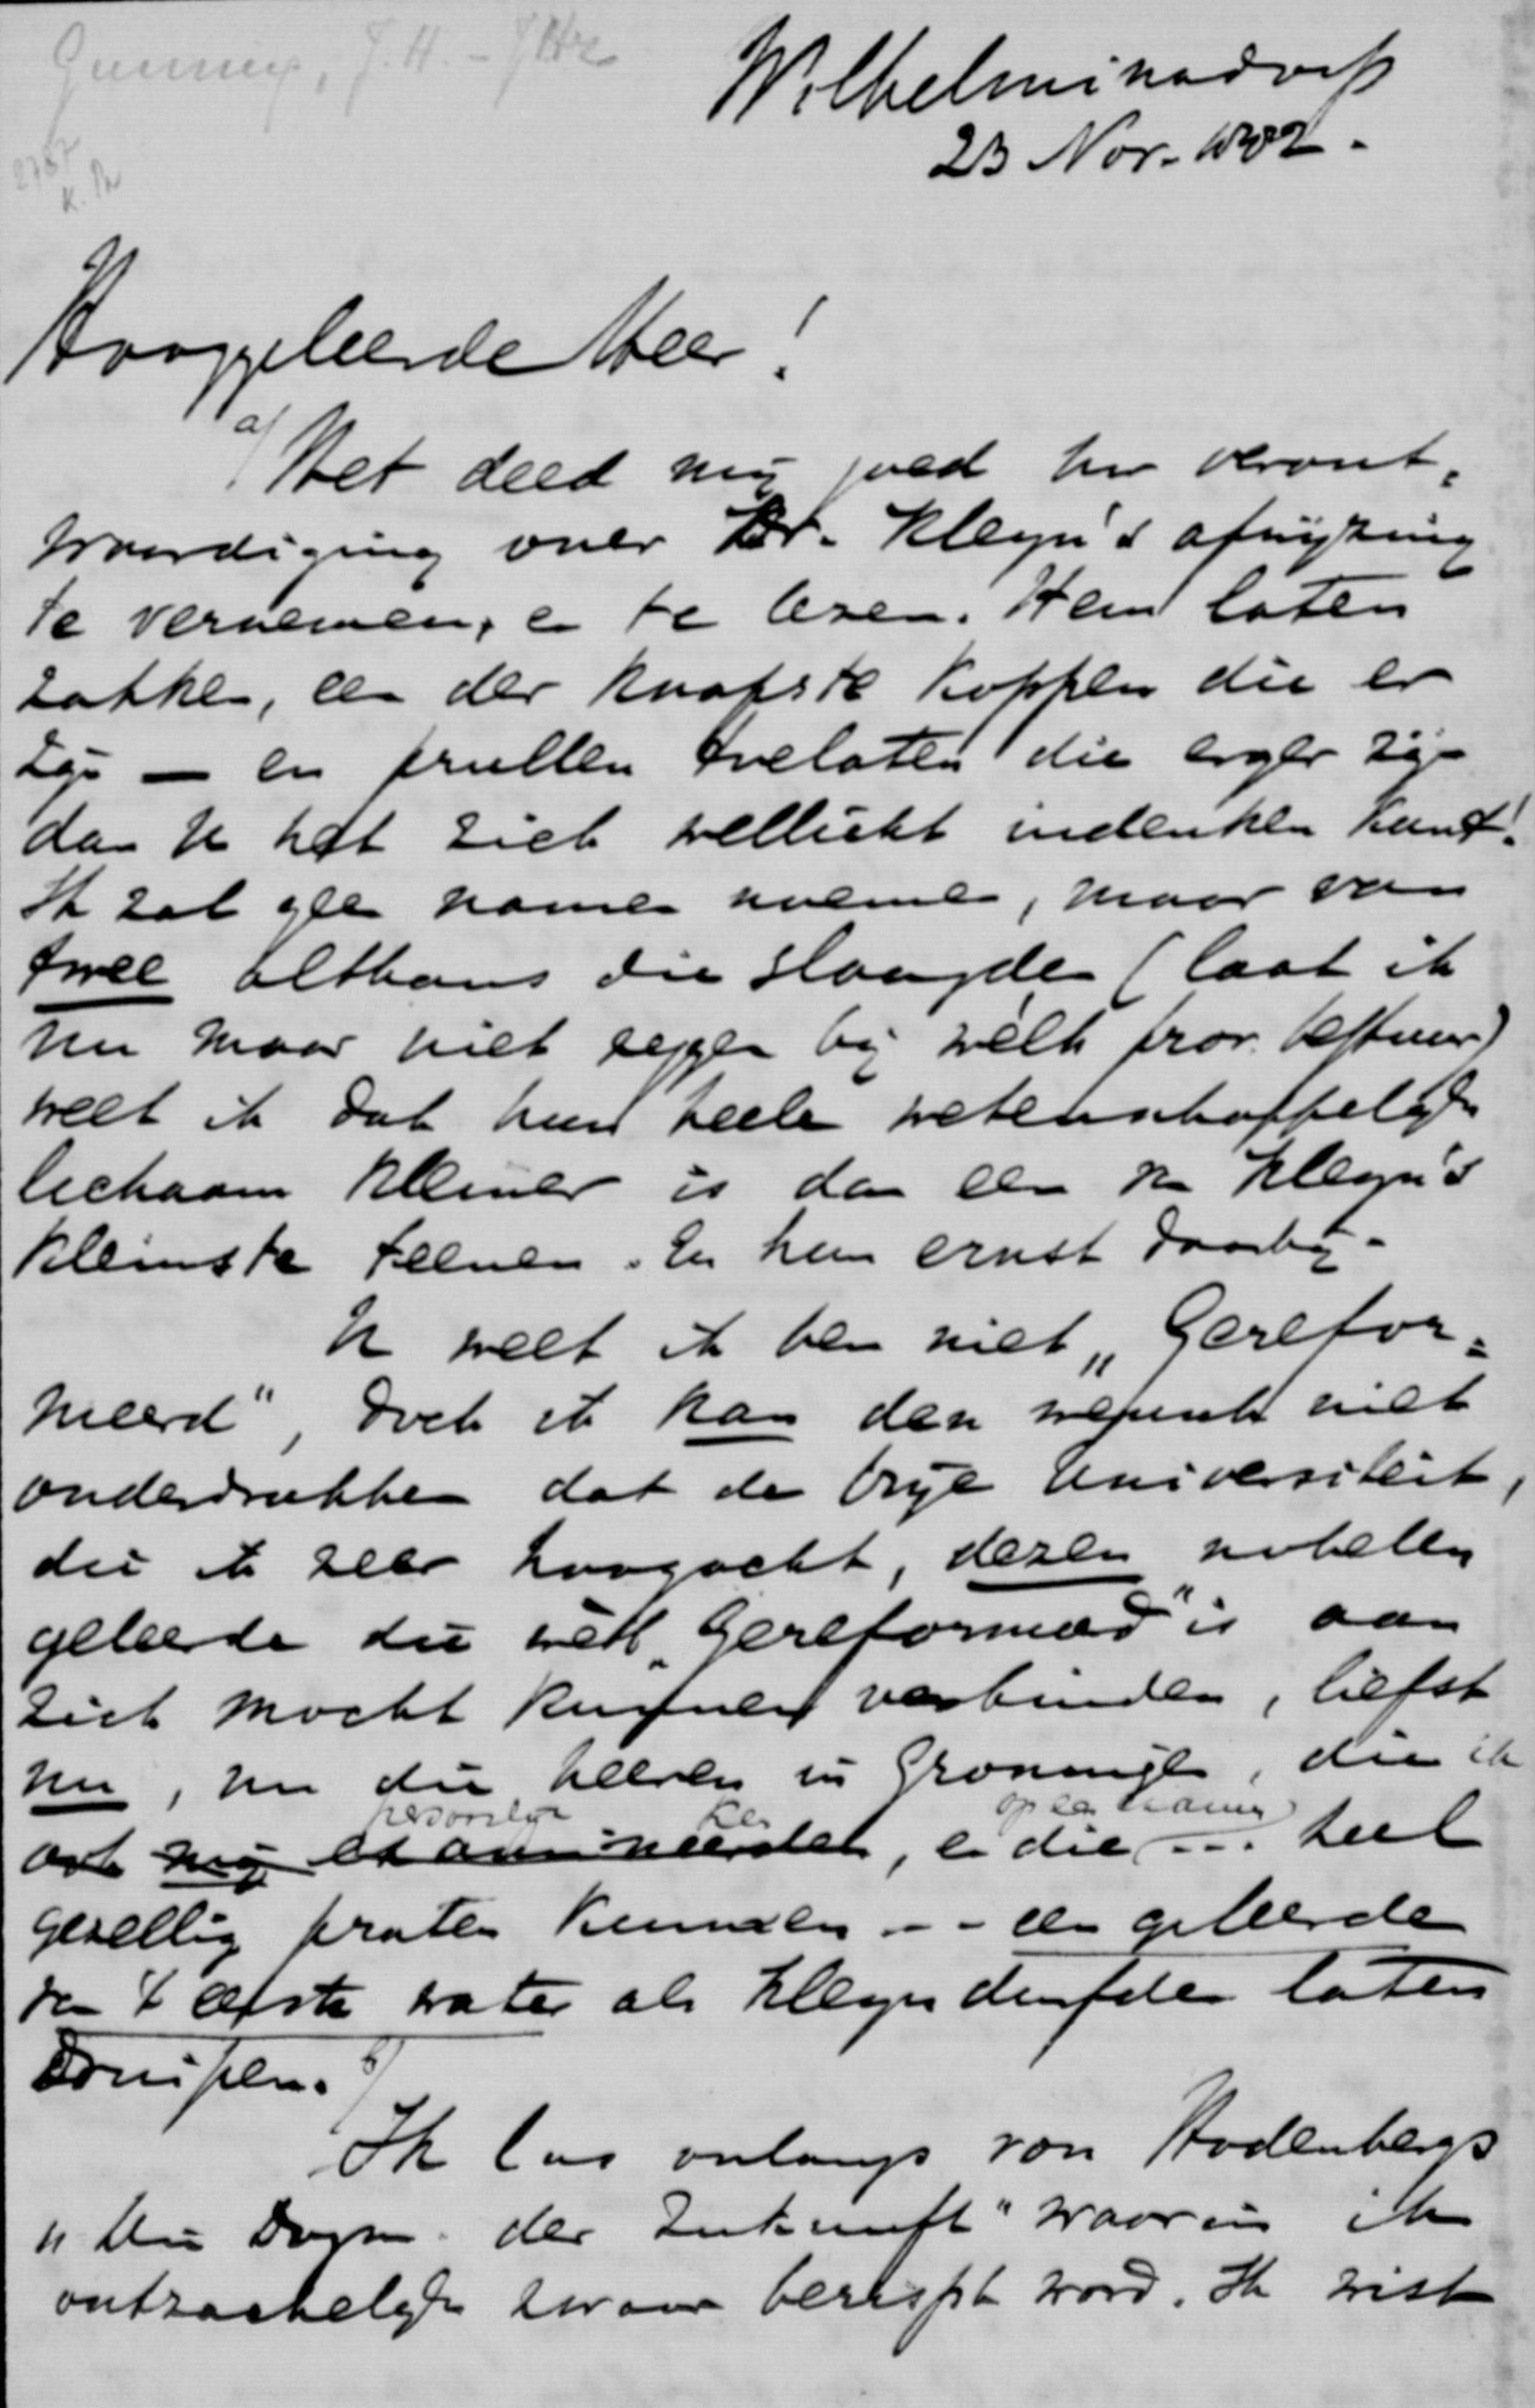 Gunning, J. H. - JHz
Wilhelminadorp
23 Nov. 1902.
Hooggeleerde Heer!
a) Het deed mij goed uw veront-
waardiging over Dr. Kleyn's afwijzing
te vernemen, en te lezen. Hem laten
zakken, een der knapste koppen die er
zijn — en prullen toelaten die erger zijn
dan U het zich wellicht indenken kunt!
Ik zal geen namen noemen, maar van
twee althans die slaagden (laat ik
nu maar niet zeggen bij welk prov. bestuur)
weet ik dat hun heele wetenschappelijk
lichaam kleiner is dan een van Kleyn's
kleinste teenen. En hun ernst daarbij.
U weet ik ben niet „Gerefor-
meerd", doch ik kan den wensch niet
onderdrukken dat de Vrije Universiteit,
die ik zeer hoogacht, dezen nobelen
geleerde die wél „Gereformeerd" is aan
zich mocht kunnen verbinden, liefst
nu, nu die heeren in Groningen, die ik
persoonlijk ken op een
ook mij examineerden, en die ... heel
gezellig praten kunnen -- een geleerde
van 't eerste water als Kleyn durfden laten
druipen. b)
Ik las onlangs von Hodenbergs
" der Zukunft" waarin ik
ontzachelijk zwaar berispt word. Ik wist